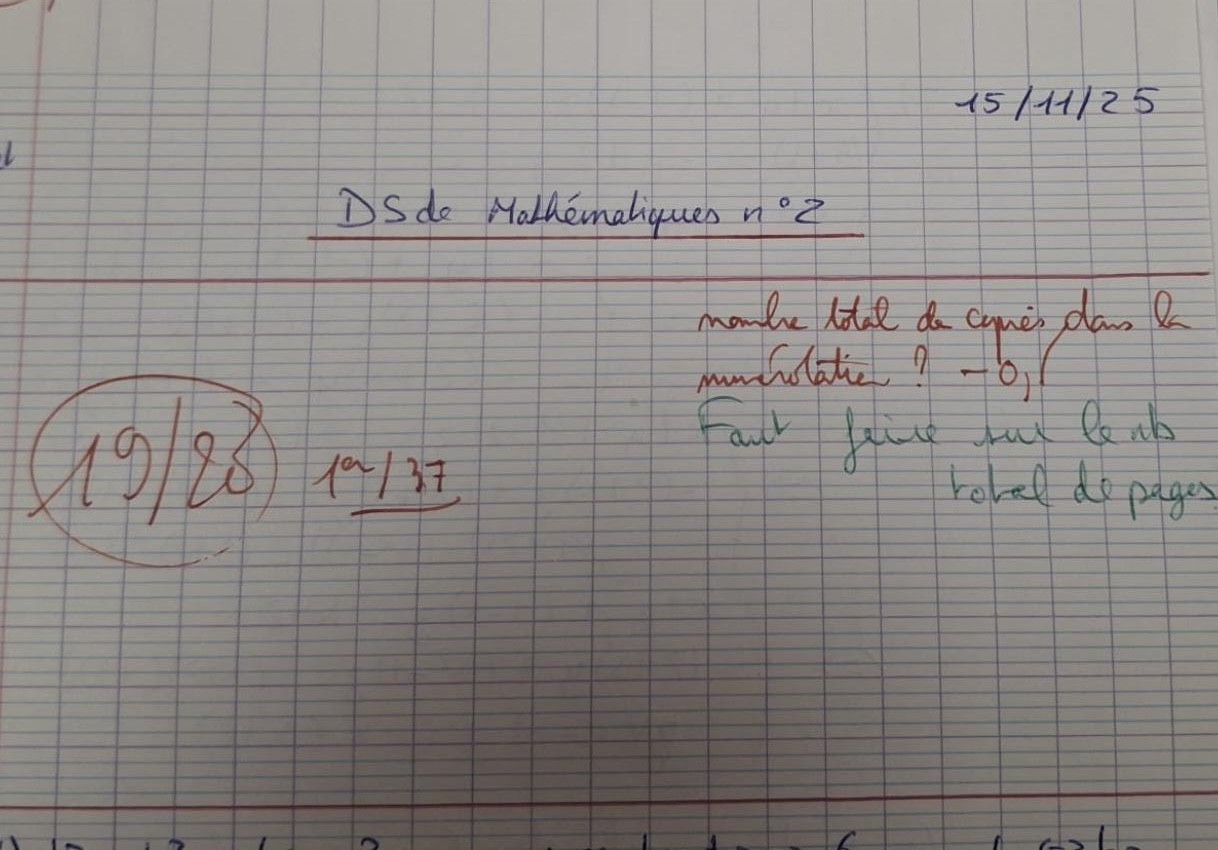 15/11/25
DS de Mathématiques n°2
nombre total de copies dans la
numérotation ? -0,
19/20
1er/37
Faut faire sur le nb
total de pages